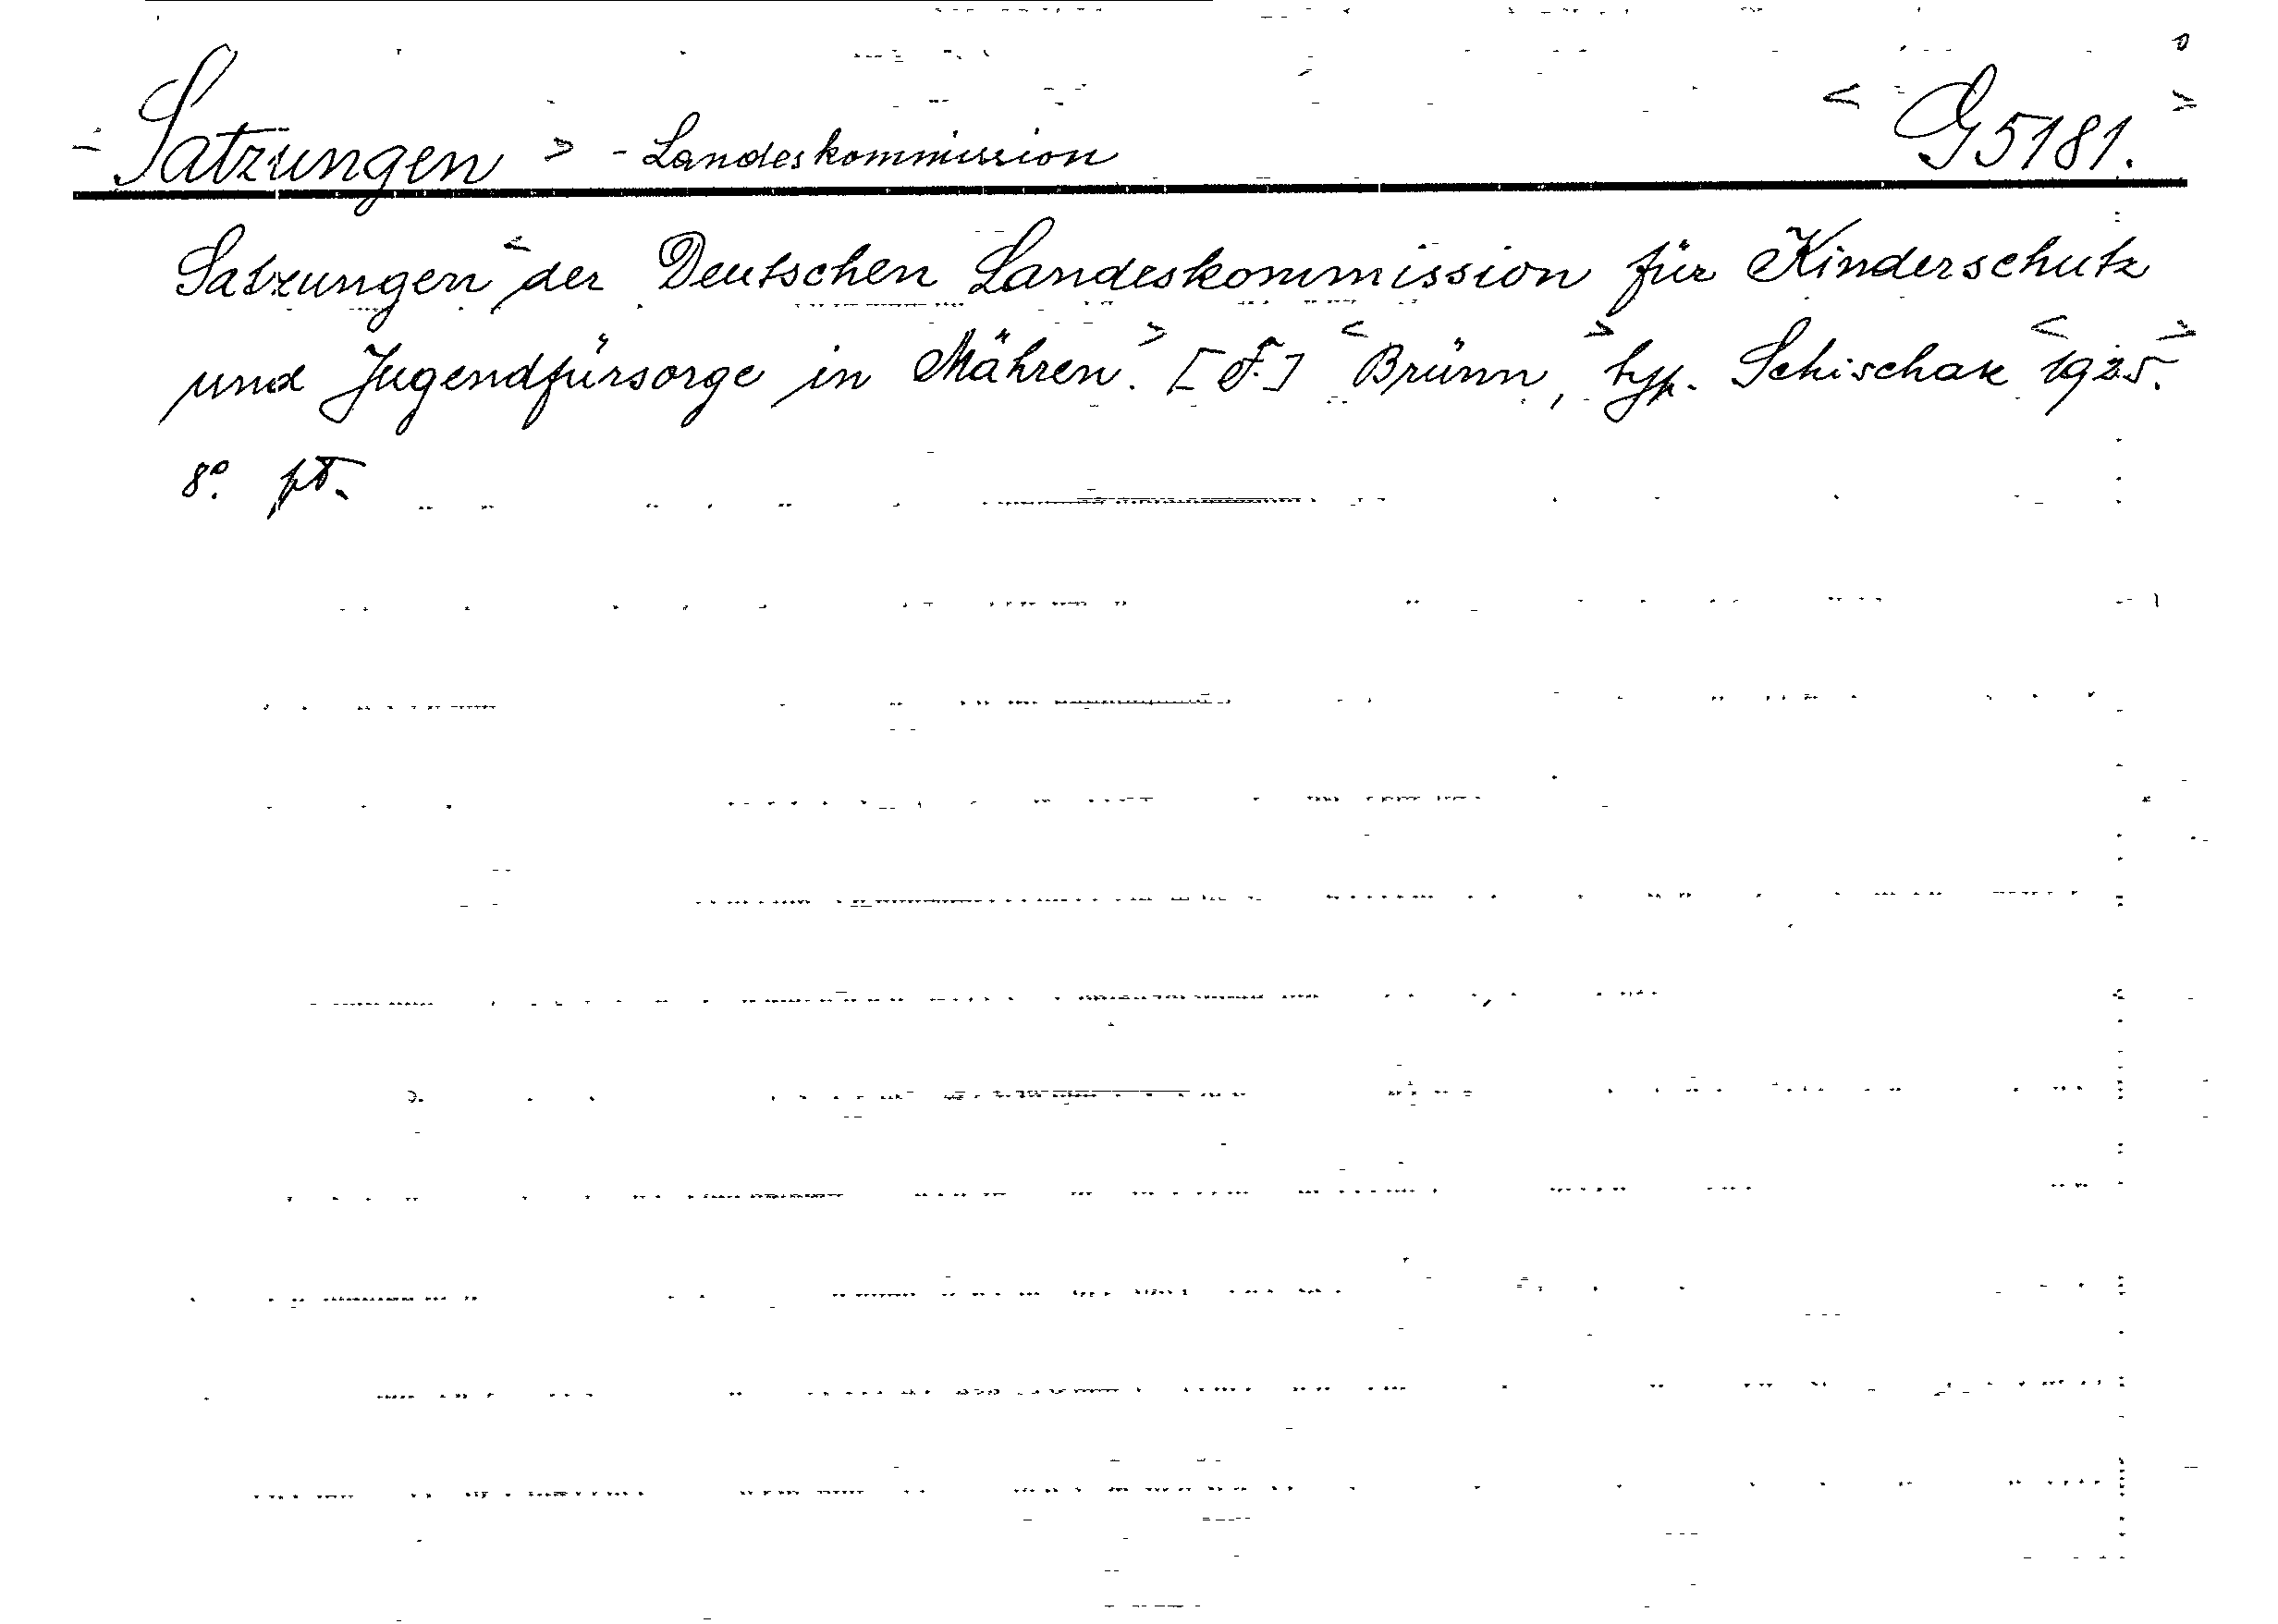 Satzungen > - Landeskommission < G 5181. >
Satzungen < der Deutschen Landeskommission für Kinderschutz
und Jugendfürsorge in Mähren. > [F.] < Brünn, > typ. Schischak < 1925. >
8°. pt.